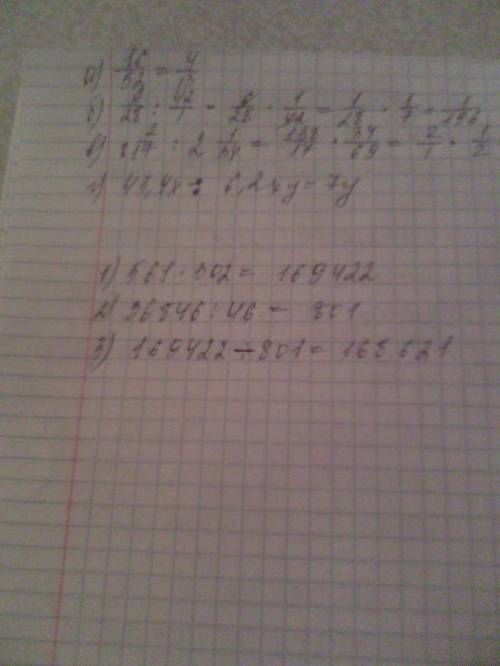 а) 36/52 = 4/13
б) 6/28 : 42/1 = 6/28 · 1/42 = 1/28 · 1/7 = 1/196
в) 8 2/17 : 2 1/34 = 138/17 · 34/69 = 2/1 · 1/2
г) 43,4x : 6,2xy = 7y
1) 561 · 302 = 169422
2) 36846 : 46 = 801
3) 169422 - 801 = 168621